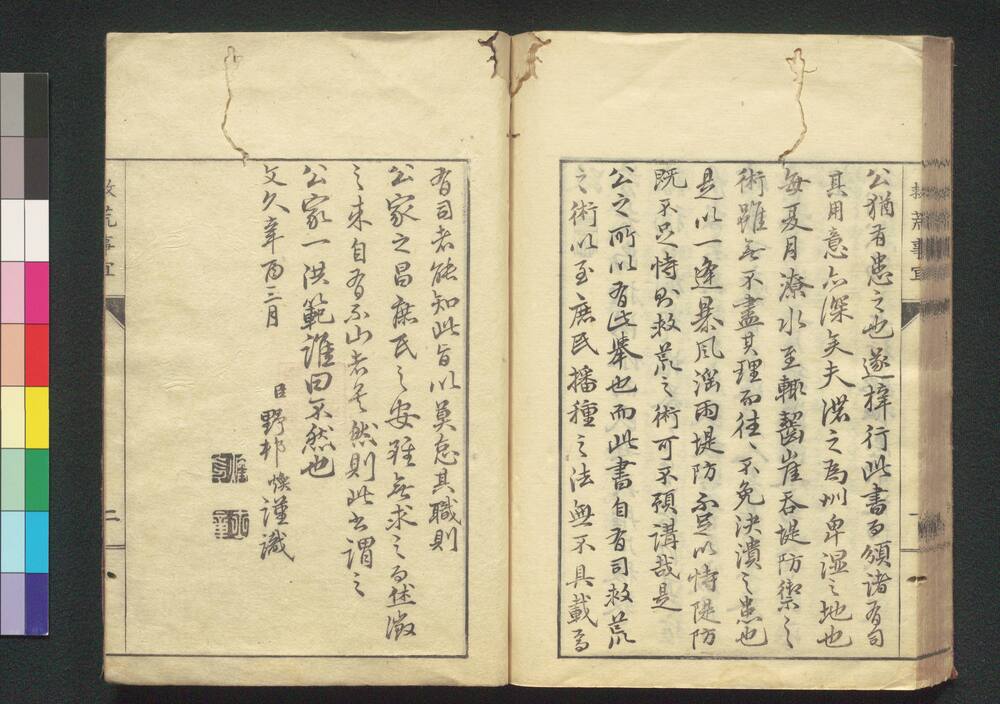 公猶有患之也遂梓行此書而頒諸有司
其用意亦深矣夫濃之為州卑湿之地也
每夏月潦水至輙齧崖吞堤防禦之
術雖無不盡其理而往々不免決潰之患也
是以一逢暴風滛雨堤防不足以恃堤防
既不足恃則救荒之術可不預講哉是
公之所以有此舉也而此書自有司救荒
之術以至庶民播種之法無不具載焉
有司者能知此旨以莫怠其職則
公家之昌庶民之安雖無求之而休徵
之来自有不止者矣然則此書謂之
公家一洪範誰曰不然也
文久辛酉三月
臣野邨煥謹識
救荒事宜
二
救荒事宜